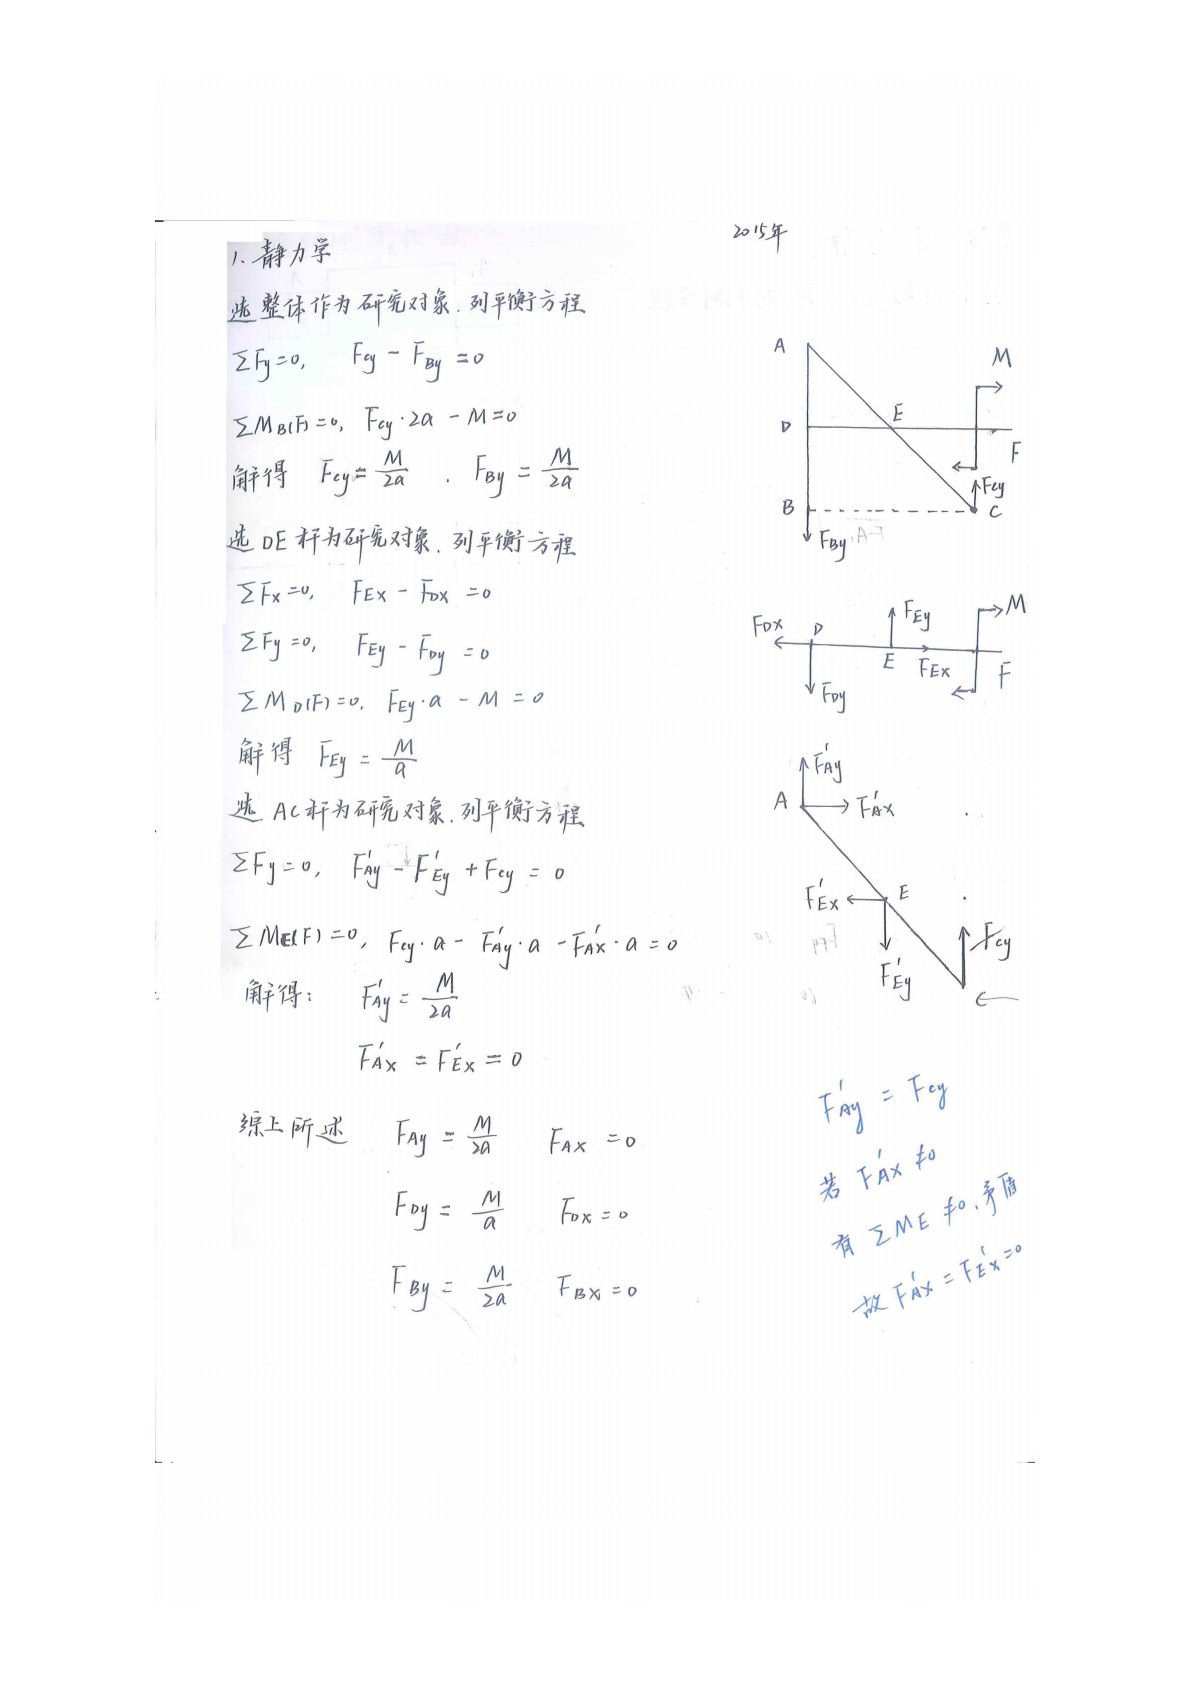 2015年
1. 静力学
选整体作为研究对象. 列平衡方程
ΣFy=0, Fcy - FBy = 0
ΣMB(F)=0, Fcy·2a - M=0
解得 Fcy=M/2a . FBy = M/2a
选DE杆为研究对象. 列平衡方程
ΣFx=0, FEx - FDx = 0
ΣFy=0, FEy - FDy = 0
ΣMD(F)=0, FEy·a - M = 0
解得 FEy = M/a
选AC杆为研究对象. 列平衡方程
ΣFy=0, F'Ay - F'Ey + Fcy = 0
ΣME(F)=0, Fcy·a - F'Ay·a - F'Ax·a = 0
解得: F'Ay = M/2a
F'Ax = F'Ex = 0
综上所述 FAy = M/2a FAx = 0
FDy = M/a FDx = 0
FBy = M/2a FBx = 0
A
M
D
E
F
B
Fcy
C
FBy
FDx
D
FEy
M
E
FEx
F
FDy
F'Ay
A
F'Ax
F'Ex
E
Fcy
F'Ey
F'Ay = Fcy
若 F'Ax ≠0
有 ΣME ≠0, 矛盾
故 F'Ax = F'Ex =0